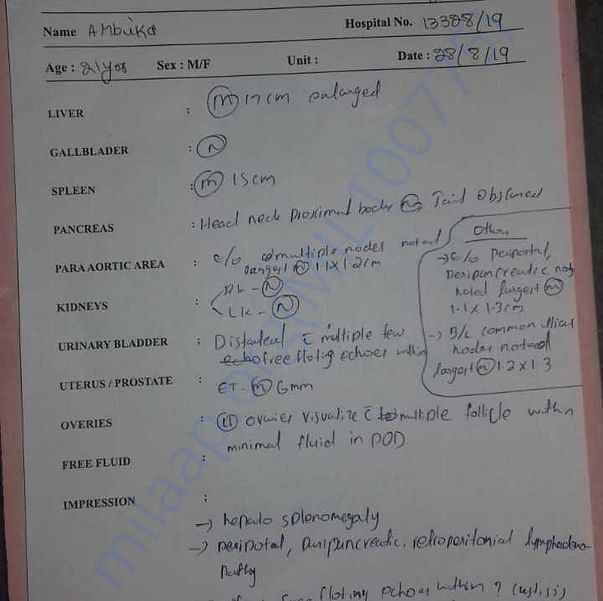 Name Ambika Hospital No. 13328/19
Age : 21yrs Sex : M/F Unit : Date : 28/8/19
LIVER : (m) 17cm enlarged
GALLBLADER : (N)
SPLEEN : (m) 15cm
PANCREAS : Head neck proximal body (N) Tail Obscured
PARA AORTIC AREA : e/o multiple nodes noted
largest (m) 1.1x1.2cm
KIDNEYS : RK - (N)
LK - (N)
Others
→ e/o periportal,
peripancreatic node
noted largest (m)
1.1 x 1.3cm
→ B/L common illiac
nodes noted
largest (m) 1.2 x 1.3
URINARY BLADDER : Distented c multiple few
free floting echoes within
UTERUS / PROSTATE : ET - (m) 6mm
OVERIES : ovaries visualize c multiple follicle within
minimal fluid in POD
FREE FLUID :
IMPRESSION :
→ hepato splenomegaly
→ periportal, peripancreatic, retroperitonial lymphadeno
pathy
free floting echoes within ? cystisis
milaap